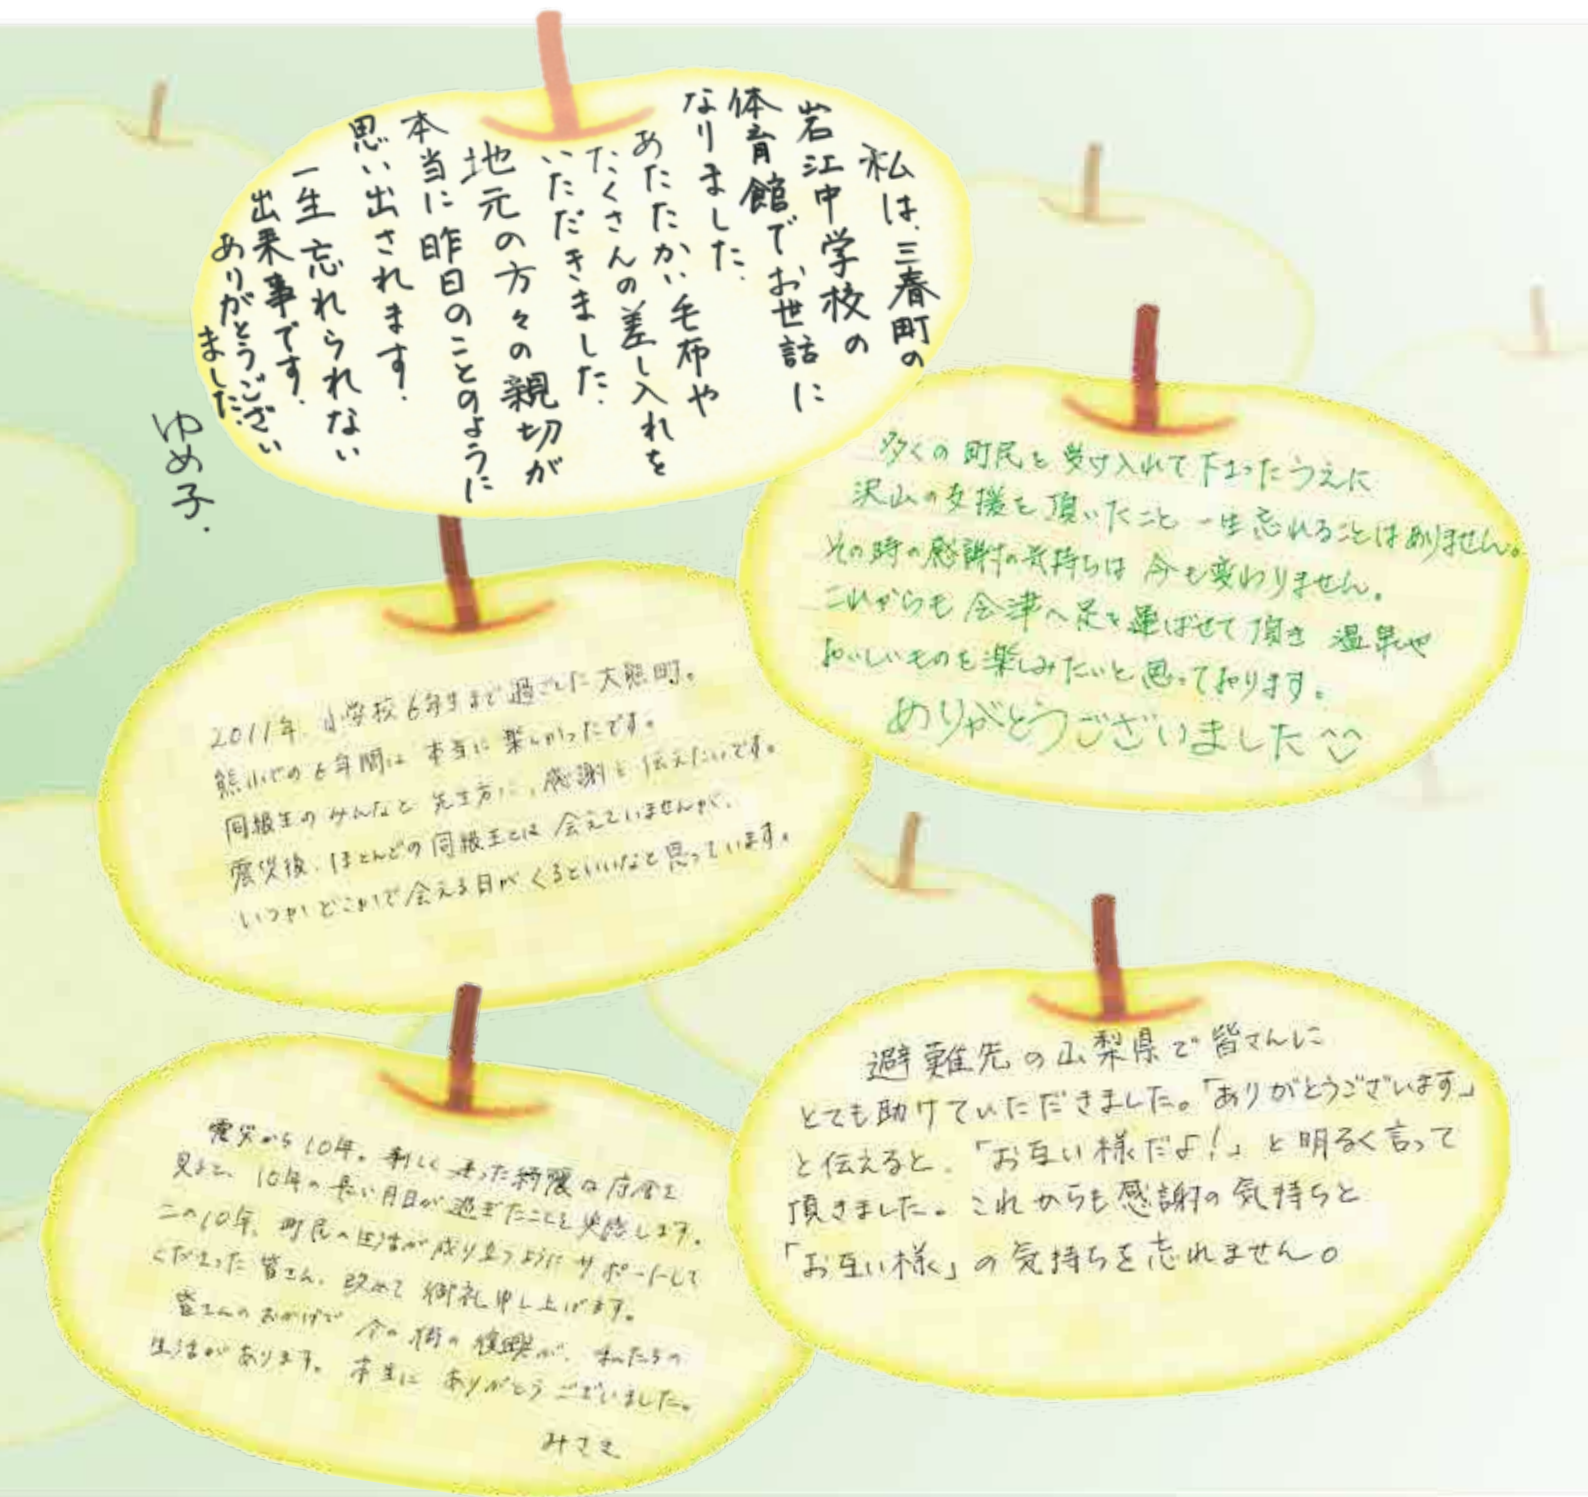 私は、三春町の
岩江中学校の
体育館でお世話に
なりました。
あたたかい毛布や
たくさんの差し入れを
いただきました。
地元の方々の親切が
本当に昨日のことのように
思い出されます。
一生忘れられない
出来事です。
ありがとうござい
ました。
ゆめ子.
多くの町民を受け入れて下さったうえに
沢山の支援を頂いたこと一生忘れることはありません。
その時の感謝の気持ちは今も変わりません。
これからも会津へ足を運ばせて頂き 温泉や
おいしいものを楽しみたいと思っております。
ありがとうございました^^
2011年、小学校6年生まで過ごした大熊町。
熊小での6年間は本当に楽しかったです。
同級生のみんなと先生方に、感謝を伝えたいです。
震災後、ほとんどの同級生とは会えていませんが、
いつかどこかで会える日がくるといいなと思っています。
避難先の山梨県で皆さんに
とても助けていただきました。「ありがとうございます」
と伝えると、「お互い様だよ!」と明るく言って
頂きました。これからも感謝の気持ちと
「お互い様」の気持ちを忘れません。
震災から10年。新しく建った綺麗な庁舎を
見ると、10年の長い月日が過ぎたことを実感します。
この10年、町民の生活が成り立つようにサポートして
くださった皆さん、改めて御礼申し上げます。
皆さんのおかげで今の街の復興が、私たちの
生活があります。本当にありがとうございました。
みさき